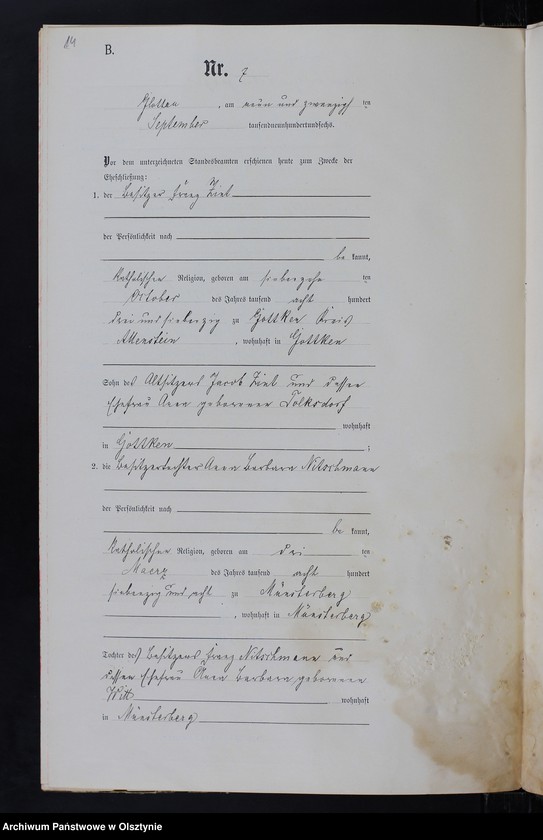 84
B.
Nr. 7
Glottau, am neun und zwanzigsten
September tausendneunhundertundsechs.
Vor dem unterzeichneten Standesbeamten erschienen heute zum Zwecke der
Eheschließung:
1. der Besitzer Franz
der Persönlichkeit nach
be kannt,
katholischer Religion, geboren am siebzehn ten
October des Jahres tausend acht hundert
drei und siebenzig zu Gottken Kreis
Allenstein, wohnhaft in Gottken
Sohn des Altsitzers Jacob und dessen
Ehefrau Anna geborenen Tolksdorf
wohnhaft
in Gottken;
2. die Besitzertochter Anna Barbara Nitschmann
der Persönlichkeit nach
be kannt,
katholischer Religion, geboren am drei ten
Maerz des Jahres tausend acht hundert
siebenzig und acht zu Münsterberg
, wohnhaft in Münsterberg
Tochter des Besitzers Franz Nitschmann und
dessen Ehefrau Anna Barbara geborenen
Witt wohnhaft
in Münsterberg
Archiwum Państwowe w Olsztynie